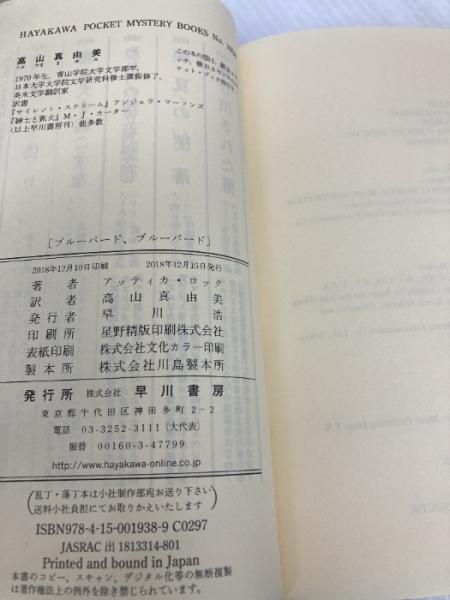 HAYAKAWA POCKET MYSTERY BOOKS No.
高山真由美
1970年生, 青山学院大学文学部卒,
日本大学大学院文学研究科修士課程修了,
英米文学翻訳家
訳書
『サイレント・スクリーム』アンジェラ・マーソンズ
『紳士と猟犬』M・J・カーター
(以上早川書房刊) 他多数
この本の型は,
[ブルーバード、ブルーバード]
2018年12月10日印刷 2018年12月15日発行
著者 アッティカ・ロック
訳者 高山真由美
発行者 早川浩
印刷所 星野精版印刷株式会社
表紙印刷 株式会社文化カラー印刷
製本所 株式会社川島製本所
発行所 株式会社 早川書房
東京都千代田区神田多町2-2
電話 03-3252-3111 (大代表)
振替 00160-3-47799
http://www.hayakawa-online.co.jp
(乱丁・落丁本は小社制作部宛お送り下さい
送料小社負担にてお取りかえいたします)
ISBN978-4-15-001938-9 C0297
JASRAC 出1813314-801
Printed and bound in Japan
本書のコピー、スキャン、デジタル化等の無断複製
は著作権法上の例外を除き禁じられています。